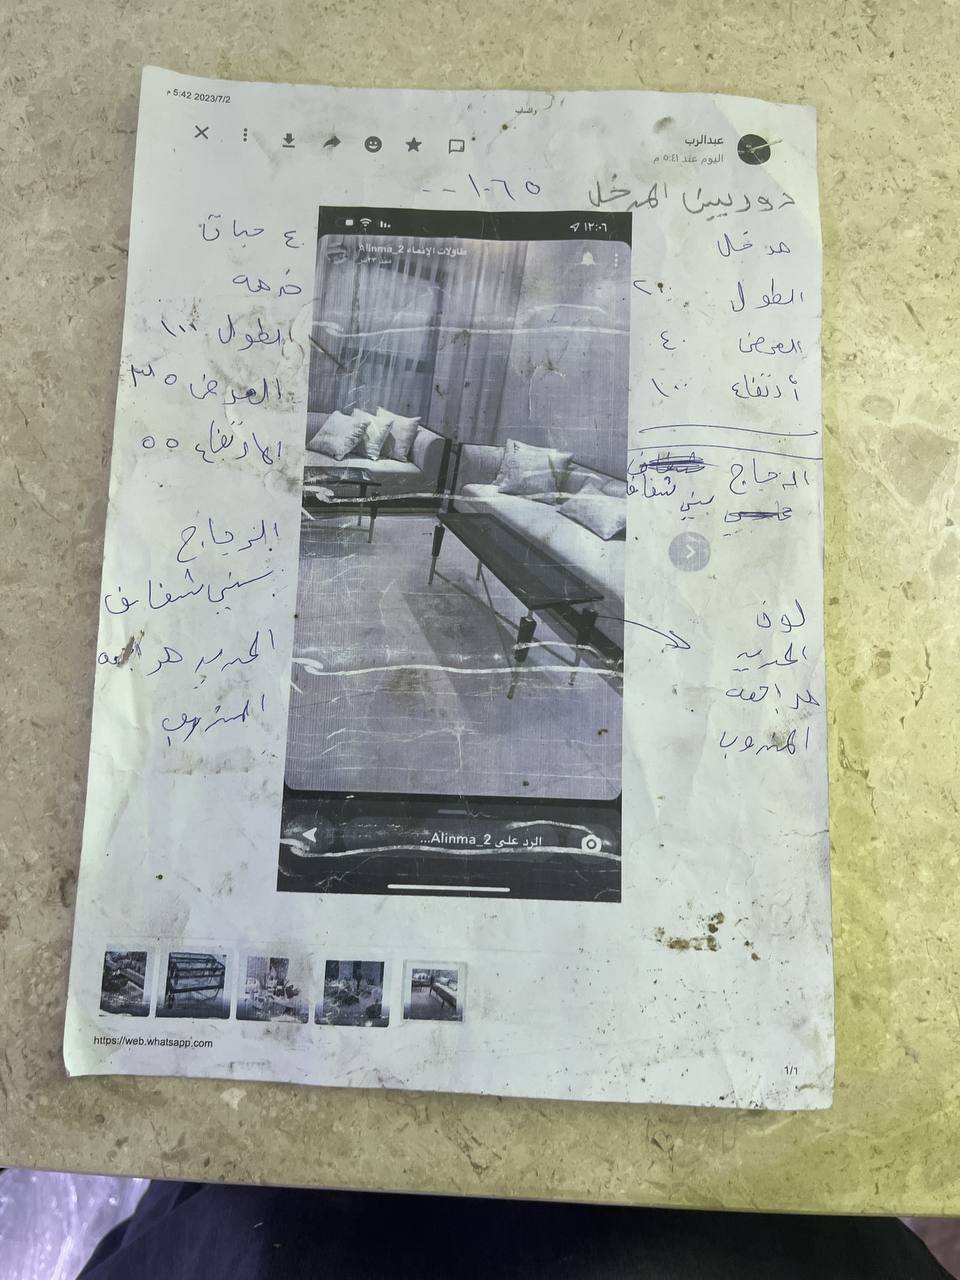 5:42 2023/7/2 م
واتساب
عبدالرب
اليوم عند ٥:٤١ م
المدخل
١٠٦٥
١٢:٠٦
طاولات الإنماء Alinma_2
مدخل
الطول ٢٠٠
العرض ٤٠
أرتفاع ١٠٠
الزجاج
بني شفاف
لون
الحديد
مراجعة
المندوب
٤ حبات
خدمه
الطول ١٠٠
العرض ٣٥
الارتفاع ٥٥
الزجاج
بني شفاف
الحديد مراجعه
المندوب
الرد على Alinma_2...
https://web.whatsapp.com
1/1